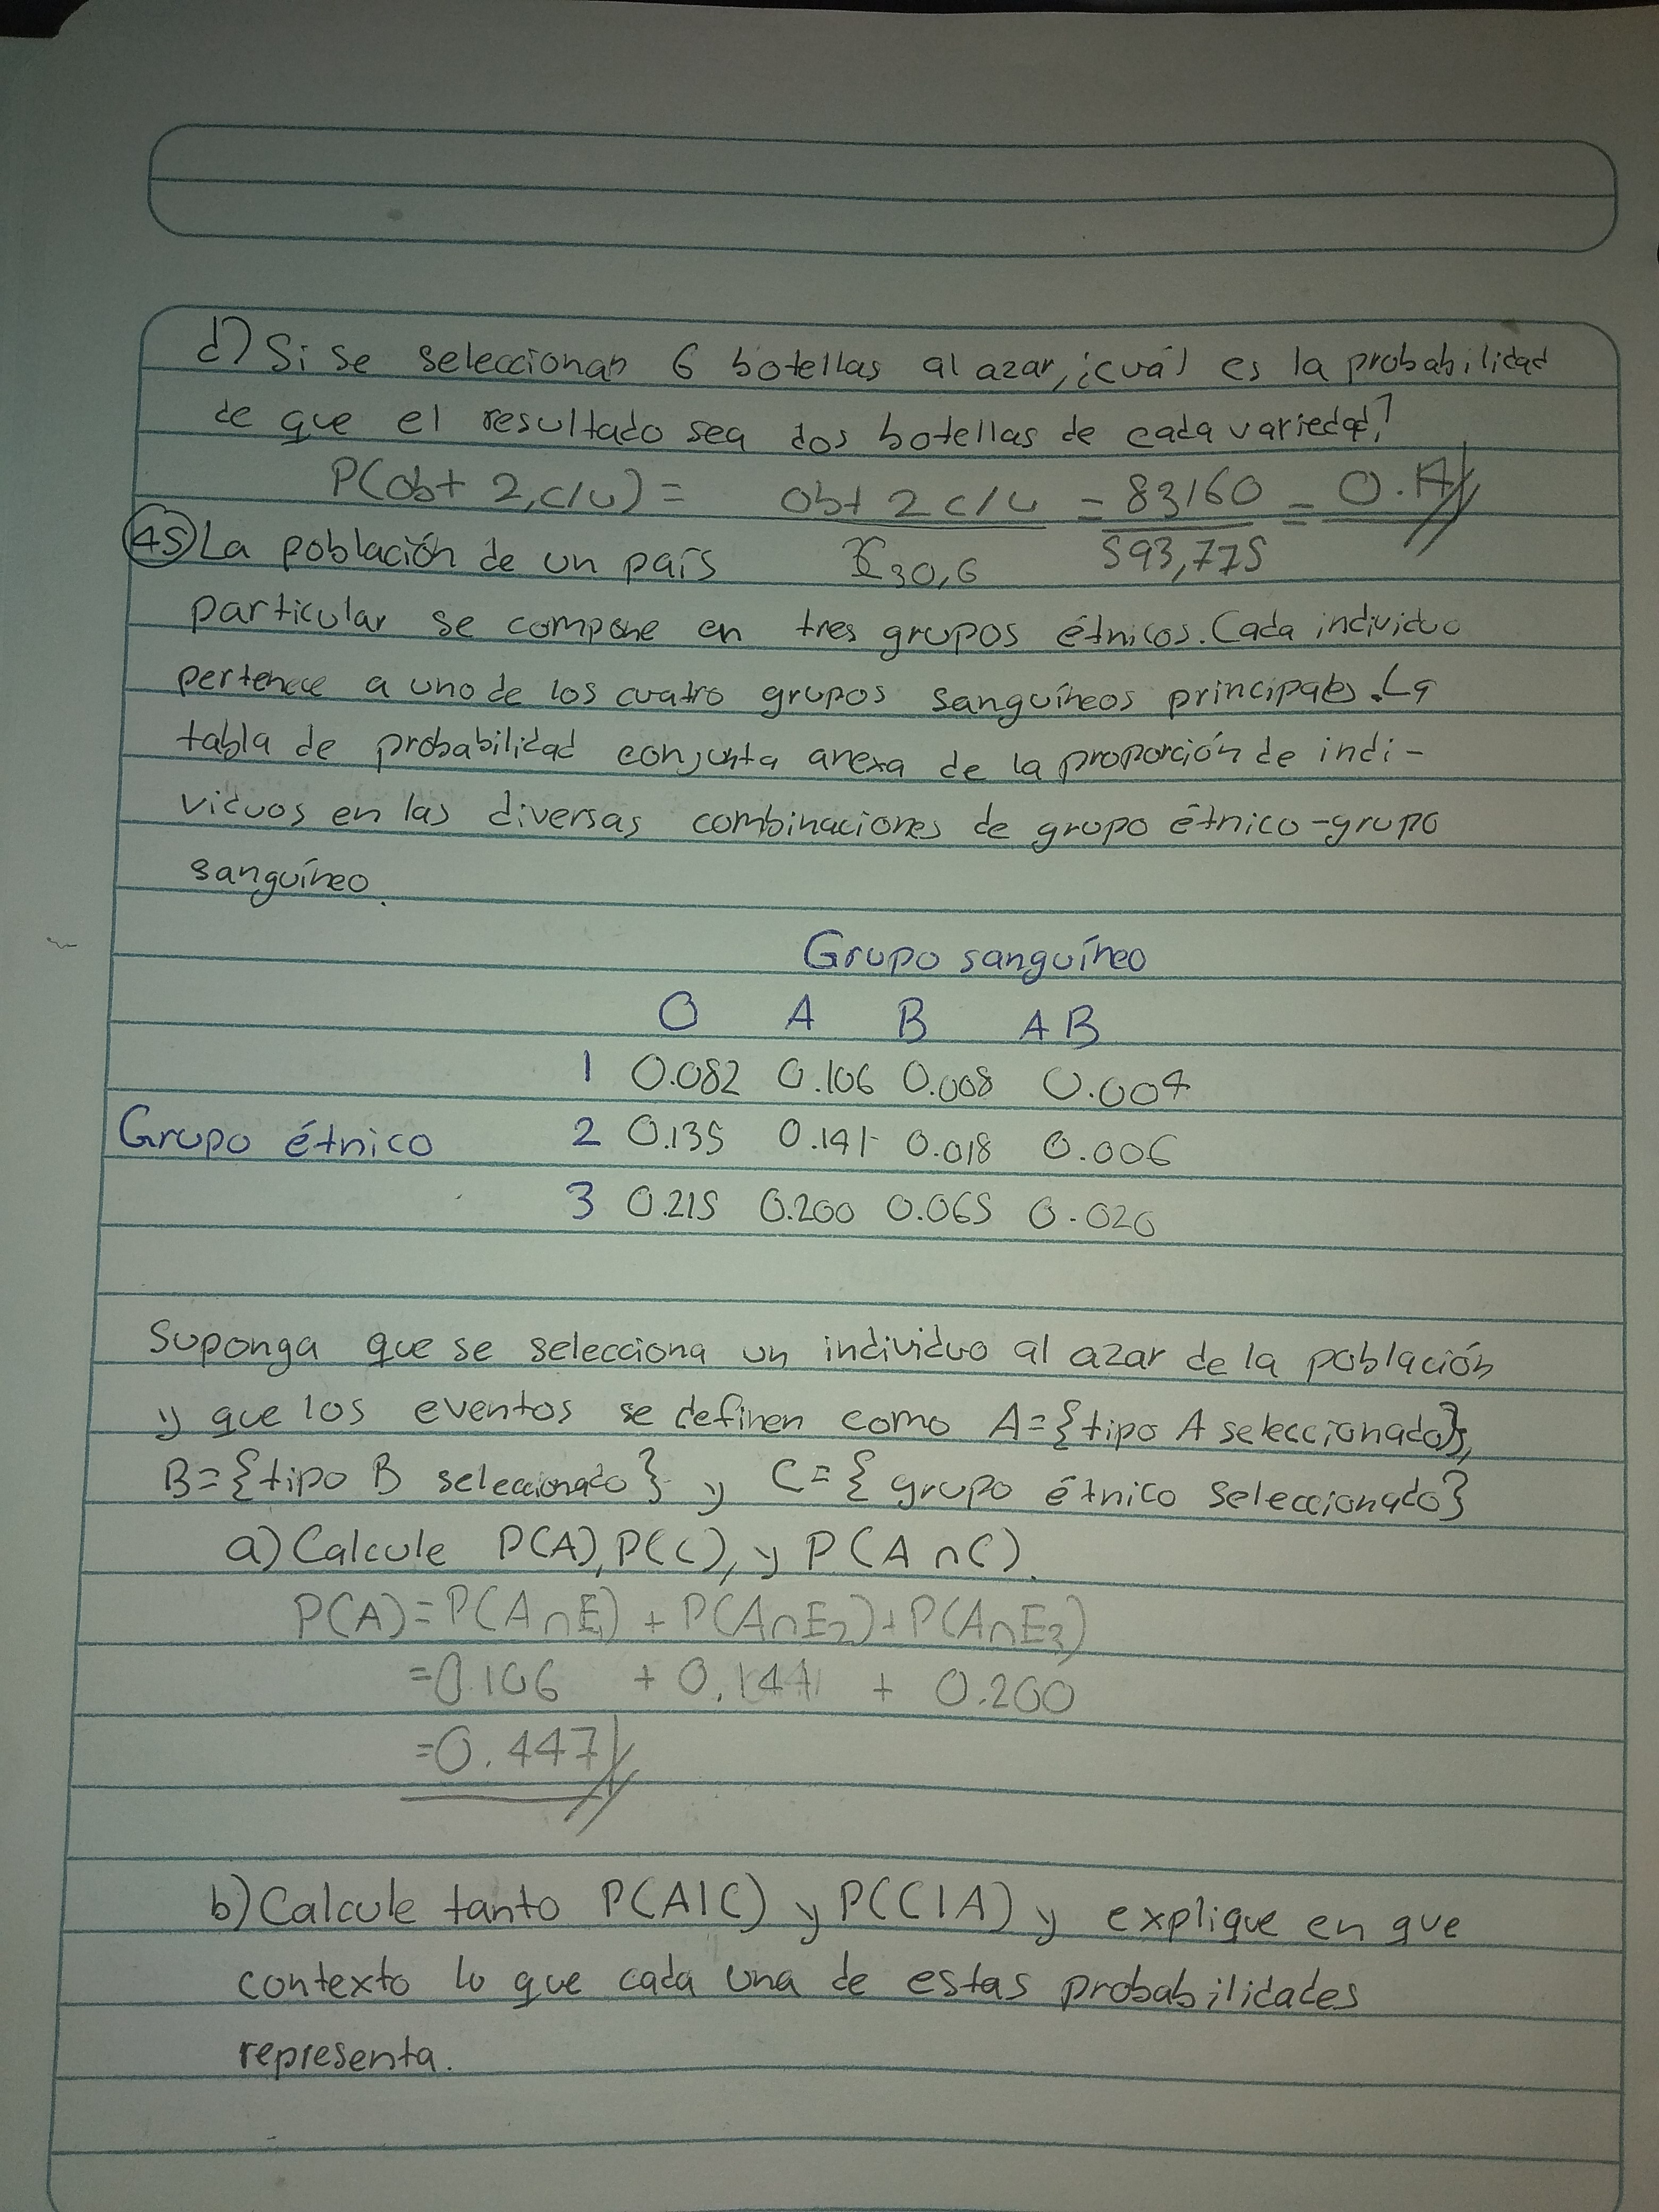 d) Si se seleccionan 6 botellas al azar, ¿cuál es la probabilidad
de que el resultado sea dos botellas de cada variedad?
P(obt 2, c/u) = obt 2 c/u / C30,6 = 83160 / 593,775 = 0.14
45) La población de un país
particular se compone en tres grupos étnicos. Cada individuo
pertenece a uno de los cuatro grupos sanguíneos principales. La
tabla de probabilidad conjunta anexa de la proporción de indi-
viduos en las diversas combinaciones de grupo étnico-grupo
sanguíneo.
Grupo sanguíneo
O A B AB
1 0.082 0.106 0.008 0.004
Grupo étnico 2 0.135 0.141 0.018 0.006
3 0.215 0.200 0.065 0.020
Suponga que se selecciona un individuo al azar de la población
y que los eventos se definen como A={tipo A seleccionado},
B={tipo B seleccionado} y C={grupo étnico seleccionado}
a) Calcule P(A), P(C), y P(A∩C).
P(A)=P(A∩E1) + P(A∩E2)+P(A∩E3)
=0.106 + 0.141 + 0.200
=0.447
b) Calcule tanto P(A|C) y P(C|A) y explique en que
contexto lo que cada una de estas probabilidades
representa.